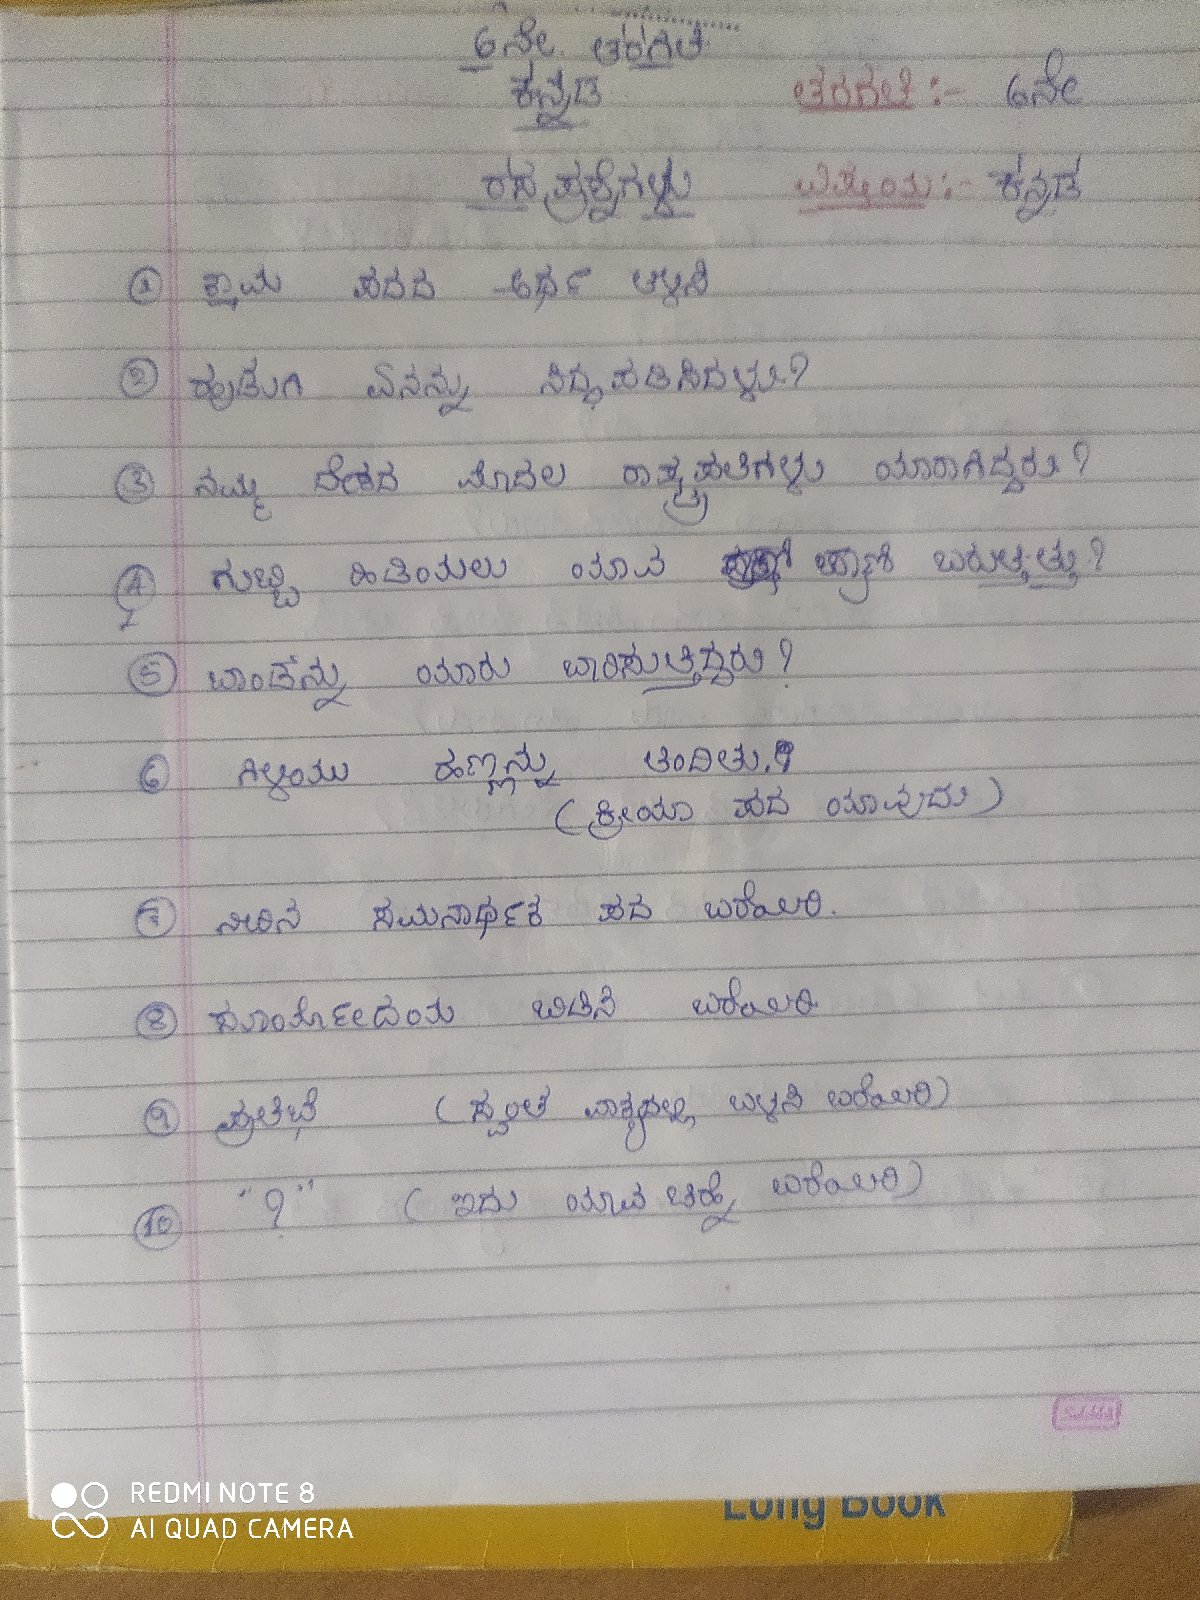 6ನೇ ತರಗತಿ
ಕನ್ನಡ
ತರಗತಿ :- 6ನೇ
ರಸಪ್ರಶ್ನೆಗಳು
ವಿಷಯ :- ಕನ್ನಡ
① ಕ್ಷಾಮ ಪದದ ಅರ್ಥ ತಿಳಿಸಿ
② ಹುಡುಗಿ ಏನನ್ನು ಸಿದ್ಧಪಡಿಸಿದಳು?
③ ನಮ್ಮ ದೇಶದ ಮೊದಲ ರಾಷ್ಟ್ರಪತಿಗಳು ಯಾರಾಗಿದ್ದರು?
④ ಗುಬ್ಬಿ ಹಿಡಿಯಲು ಯಾವ ಪ್ರಾಣಿ ಬರುತ್ತಿತ್ತು?
⑤ ಯಾರು ಬಾರಿಸುತ್ತಿದ್ದರು?
⑥ ಗಿಳಿಯು ಹಣ್ಣನ್ನು ತಂದಿತು.?
(ಕ್ರೀಯಾ ಪದ ಯಾವುದು)
⑦ ನೀರಿನ ಸಮನಾರ್ಥಕ ಪದ ಬರೆಯಿರಿ.
⑧ ಸೂರ್ಯೋದಯ ಬಿಡಿಸಿ ಬರೆಯಿರಿ
⑨ ಪ್ರತಿಭೆ (ಸ್ವಂತ ವಾಕ್ಯದಲ್ಲಿ ಬಳಸಿ ಬರೆಯಿರಿ)
⑩ "?" (ಇದು ಯಾವ ಚಿಹ್ನೆ ಬರೆಯಿರಿ)
Long Book
REDMI NOTE 8
AI QUAD CAMERA